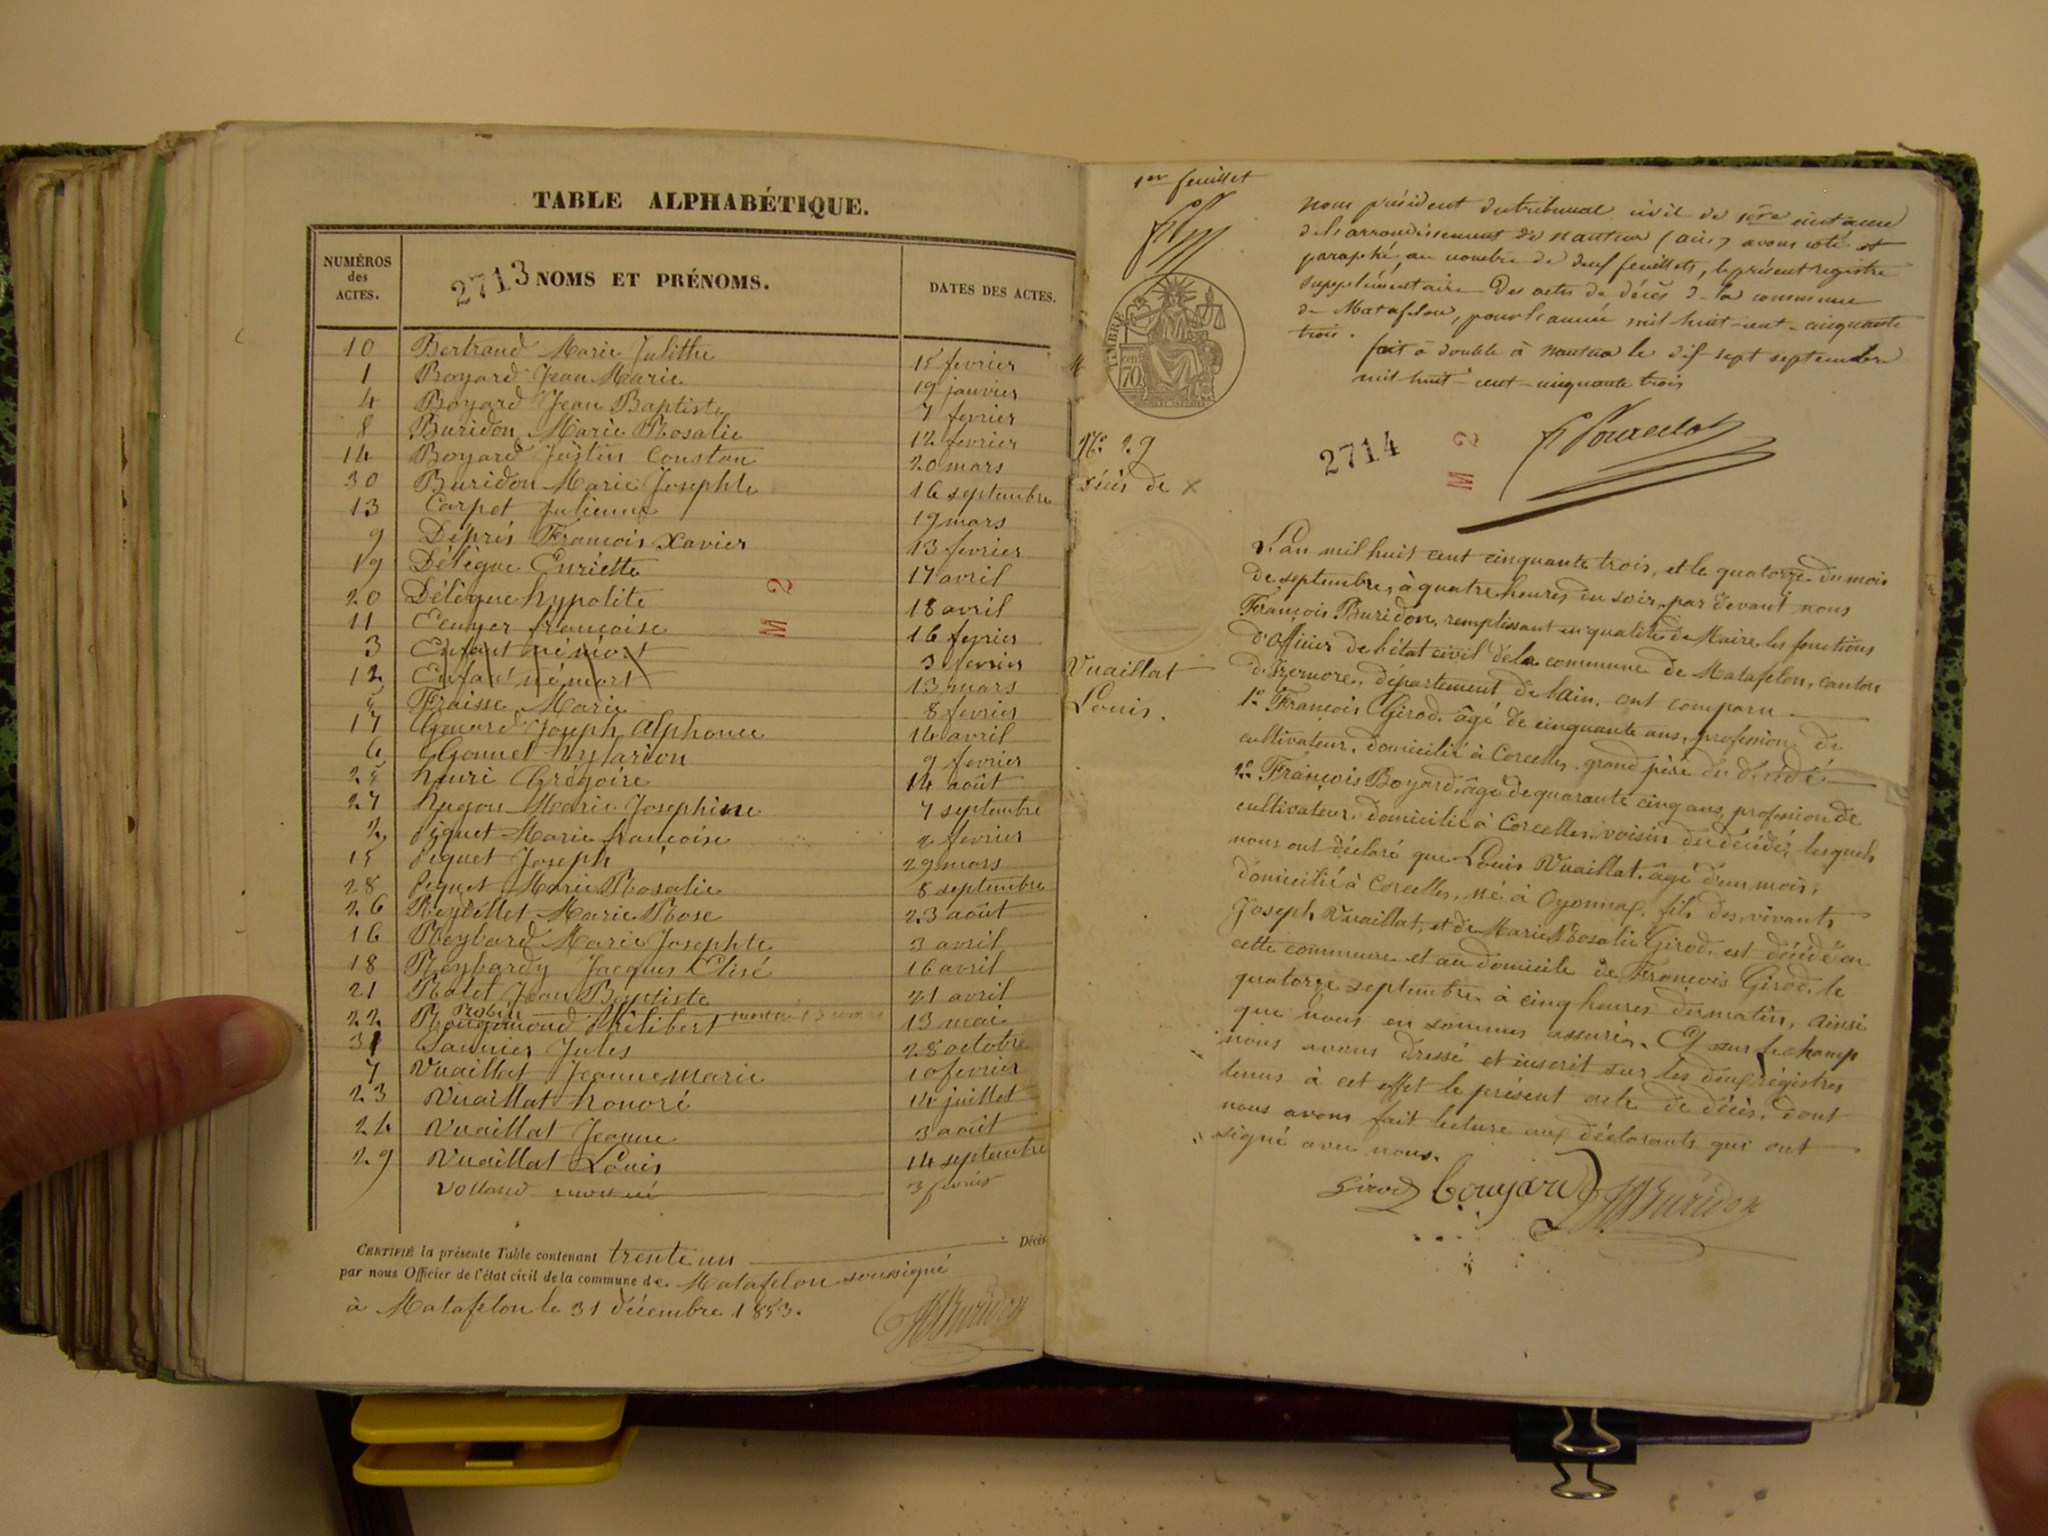 TABLE ALPHABÉTIQUE.
NUMÉROS des ACTES.
2713 NOMS ET PRÉNOMS.
DATES DES ACTES.
10 Bertrand Marie Julithe 15 fevrier
1 Boyard Jean Marie 19 janvier
4 Boyard Jean Baptiste 7 fevrier
8 Buridon Marie Rosalie 12 fevrier
14 Boyard Justin Constan 20 mars
30 Buridon Marie Josephte 16 septembre
13 Carpet Julienne 19 mars
9 Déprés François Xavier 13 fevrier
19 Délègue Enriette 17 avril
20 Délègue hypolite 18 avril
11 Ecuyer françoise 16 fevrier
3 Enfant né mort 3 fevrier
12 Enfant né mort 13 mars
5 Fraisse Marie 8 fevrier
17 Goyard Joseph Alphonse 14 avril
6 Gonnet hylarion 9 fevrier
25 henri Grégoire 14 août
27 hugon Marie Josephine 7 septembre
2 piquet Marie françoise 2 fevrier
15 piquet Joseph 29 mars
28 piquet Marie Rosalie 8 septembre
26 Reydellet Marie Rose 23 août
16 Reybard Marie Josephte 3 avril
18 Reybardy Jacques Elisé 16 avril
21 Ratet Jean Baptiste 21 avril
22 Robin Rougemond Philibert 13 mai
31 Saunier Jules 28 octobre
7 Vuaillat Jeanne Marie 10 fevrier
23 Vuaillat honoré 14 juillet
24 Vuaillat Jeanne 3 août
29 Vuaillat Louis 14 septembre
Volland 3 fevrier
M 2
CERTIFIÉ la présente Table contenant trente un Décès
par nous Officier de l'état civil de la commune de Matafelon soussigné
à Matafelon le 31 décembre 1853.
Buridon
1er feuillet
TIMBRE
70
nous président du tribunal civil de 1ère instance
de l'arrondissement de nantua (ain) avons coté et
paraphé, au nombre de deux feuillets, le présent registre
supplémentaire des actes de décès de la commune
de Matafelon, pour l'année mil huit-cent-cinquante
trois.
fait à double à nantua le dix sept septembre
mil huit-cent-cinquante trois
2714
M 2
No. 29
Décès de
Vuaillat
Louis.
L'an mil huit cent cinquante trois, et le quatorze du mois
de septembre, à quatre heures du soir, par devant nous
François Buridon, remplissant en qualité de Maire les fonctions
d'officier de l'état civil de la commune de Matafelon, canton
d'Izernore, département de l'ain, ont comparu
1o. François Girod, âgé de cinquante ans, profession de
cultivateur, domicilié à Corcelles, grand père du décédé
2o. François Boyard, âgé de quarante cinq ans, profession de
cultivateur, domicilié à Corcelles, voisin du décédé, lesquels
nous ont déclaré que Louis Vuaillat, âgé d'un mois,
domicilié à Corcelles, né à Oyonnax, fils des vivants
Joseph Vuaillat, et de Marie Rosalie Girod, est décédé en
cette commune et au domicile de François Girod, le
quatorze septembre à cinq heures du matin, ainsi
que nous en sommes assurés. Et sur le champ
nous avons dressé et inscrit sur les deux régistres
tenus à cet effet le présent acte de décès, dont
nous avons fait lecture aux déclarants qui ont
signé avec nous.
Girod Bouyard Buridon